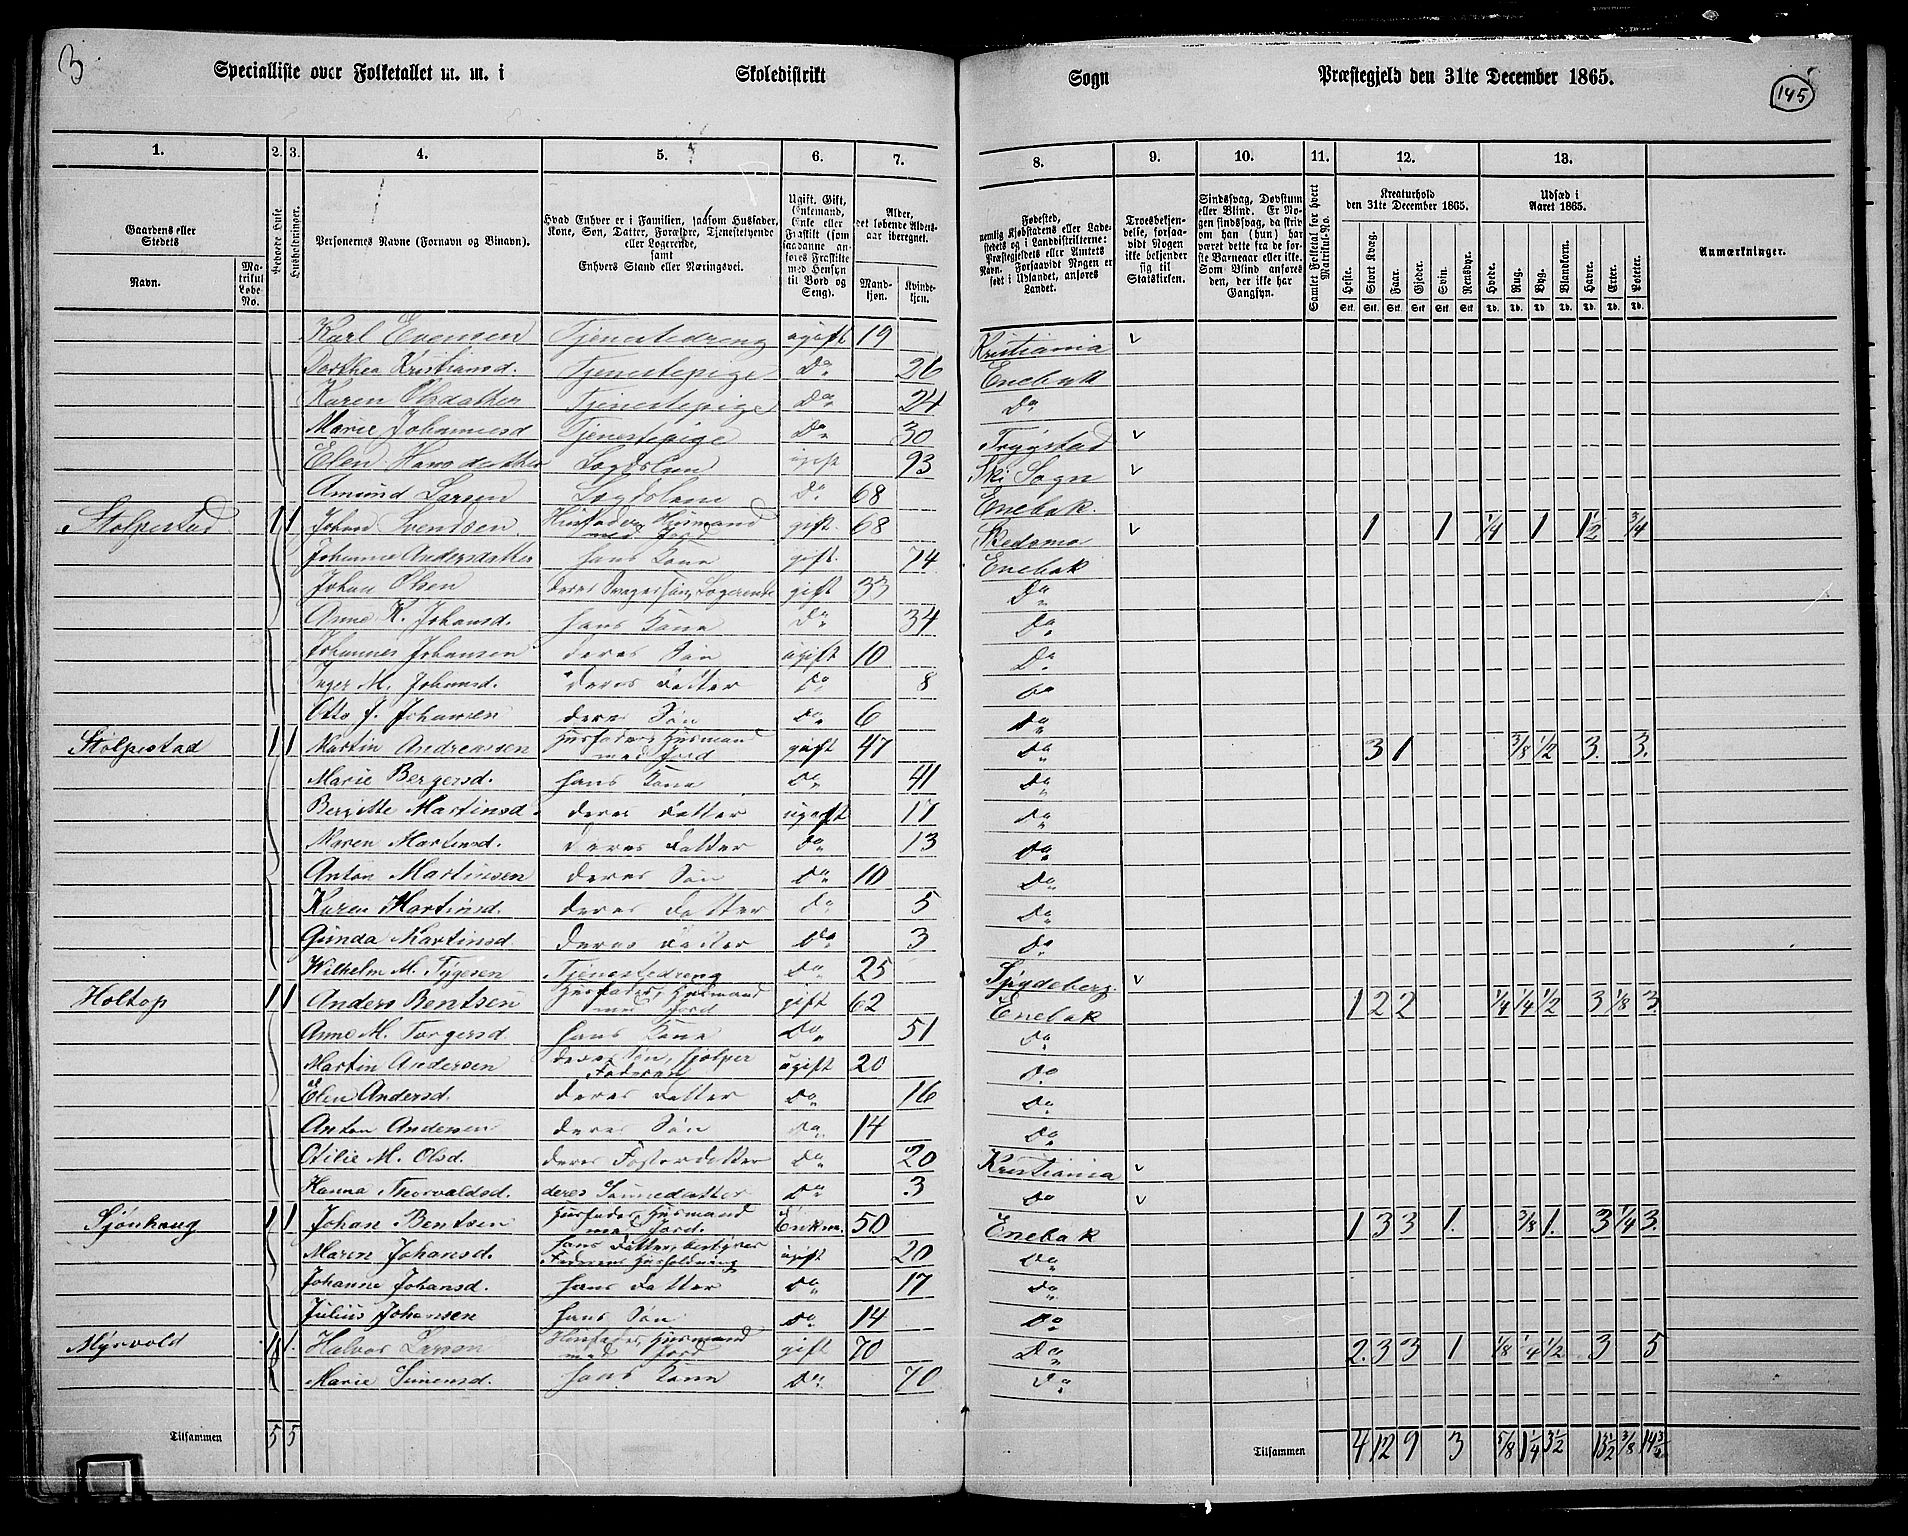 3
145
Specialliste over Folketallet m. m. i Skoledistrikt Sogn Præstegjeld den 31te December 1865.
1. 2. 3. 4. 5. 6. 7. 8. 9. 10. 11. 12. 13.
Gaardens eller Stedets
Navn.
Matrikul Løbe-No.
Beboede Huse.
Husholdninger.
Personernes Navne (Fornavn og Binavn).
Hvad Enhver er i Familien, saasom Husfader, Kone, Søn, Datter, Forældre, Tjenestetyende eller Logerende, samt Enhvers Stand eller Næringsvei.
Ugift, Gift, Enkemand, Enke eller Fraskilt (som saadanne anføres Fraskilte med Hensyn til Bord og Seng).
Alder, det løbende Aldersaar iberegnet.
Mandkjøn. Kvindekjøn.
Fødested, nemlig Kjøbstadens eller Ladestedets og i Landdistrikterne Præstegjeldets eller Amtets Navn. Forsaavidt Nogen er født i Udlandet, anføres Landet.
Troesbekjendelse, forsaavidt Nogen ikke bekjender sig til Statskirken.
Sindssvag, Døvstum eller Blind. Er Nogen sindssvag, da skrives om han (hun) har været dette fra de første Barneaar eller ikke. Som Blind anføres den, der ikke har Gangsyn.
Samlet Folketal for hvert Matrikul-No.
Kreaturhold den 31te December 1865.
Heste. Stort Kvæg. Faar. Gjeder. Svin. Rensdyr.
Udsæd i Aaret 1865.
Hvede. Rug. Byg. Blandkorn. Havre. Erter. Poteter.
Anmærkninger.
Karl Evensen Tjenestedreng ugift 19 Kristiania v
Dorthea Kristiansd. Tjenestepige Do 26 Enebak
Karen Olsdatter Tjenestepige Do 24 Do
Marie Johannesd Tjenestepige Do 30 Trygstad v
Elen Hansdatter Lægdslem ugift 93 Ski Sogn v
Amund Larsen Lægdslem Do 68 Enebak.
Stolpestad 1 1 Johan Svendsen Husfader, Husmand med Jord gift. 68 Skedsmo v 1 1 1/4 1 1 1/2 3/4
Johanne Andersdatter hans Kone gift. 74 Enebak
Johan Olsen deres Svigersøn, Logerende gift 33 Do
Anne K. Johansd. hans Kone Do 34 Do
Johannes Johansen deres Søn ugift 10 Do
Inger M. Johansd. deres Datter Do 8 Do
Otto J. Johansen deres Søn Do 6 Do
Stolpestad 1 1 Martin Andreassen Husfader, Husmand med Jord gift 47 Do 3 1 3/8 1/2 3. 3.
Marie Bergersd. hans Kone Do 41 Do
Bergitte Martinsd deres Datter ugift 17 Do
Maren Martinsd. deres Datter Do 13 Do
Anton Martinsen deres Søn Do 10 Do
Karen Martinsd. deres Datter Do 5 Do
Gunda Martinsd deres Datter Do 3 Do
Wilhelm M. Tygesen Tjenestedreng Do 25 Spydeberg v
Holtop 1 1 Anders Bentsen Husfader, Husmand med Jord gift 62 Enebak 1 2 2 1/4 1/4 1/2 3 1/8 3.
Anne M. Torgersd. hans Kone Do 51 Do
Martin Andersen deres Søn, hjelper Faderen ugift 20 Do
Elen Andersd. deres Datter Do 16 Do
Anton Andersen deres Søn Do 14 Do
Otilie M. Olsd. deres Fosterdatter Do 20 Kristiania v
Hanna Thorvaldsd. deres Sønnedatter Do 3 Do v
Sjønhaug 1 1 Johan Bentsen Husfader, Husmand med Jord. Enkm. 50 Enebak 1 3 3 1. 3/8 1. 3 1/4 3.
Maren Johansd. hans Datter, bestyrer Faderens Husholdning ugift 20 Do
Johanne Johansd. hans Datter Do 17 Do
Julius Johansen hans Søn Do 14 Do
Myrvold 1 1. Halvor Larsen Husfader, Husmand med Jord gift 70 Do 2. 3 3 1 1/8 1/4 1/2 3 5
Marie Simensd. hans Kone Do 70 Do
Tilsammen 5 5 Tilsammen 4 12 9 3 5/8 1 1/4 3 1/2 13 1/2 3/8 14 3/4